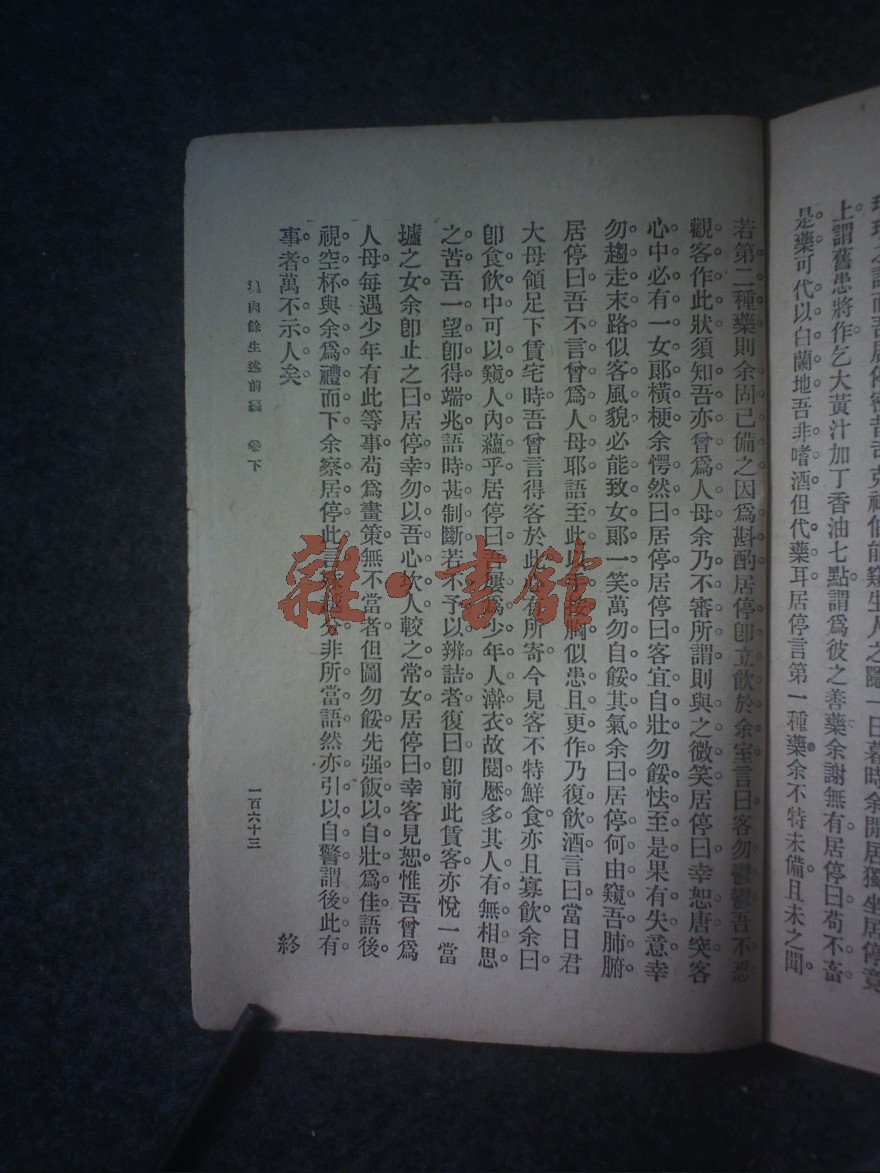 上謂舊患將作乞大黃汁加丁香油七點謂爲彼之善藥余謝無有居停曰苟不畜
是藥可代以白蘭地吾非嗜酒但代藥耳居停言第一種藥余不特未備且未之聞
若第二種藥則余固已備之因爲斟酌居停卽立飮於余室言曰客勿鬱鬱吾不忍
觀客作此狀須知吾亦曾爲人母余乃不審所謂則與之微笑居停曰幸恕唐突客
心中必有一女郞橫梗余愕然曰居停居停曰客宜自壯勿餒怯至是果有失意幸
勿趨走末路似客風貌必能致女郞一笑萬勿自餒其氣余曰居停何由窺吾肺腑
居停曰吾不言曾爲人母耶語至此以手按胸似患且更作乃復飮酒言曰當日君
大母領足下賃宅時吾曾言得客於此有所寄今見客不特鮮食亦且寡飮余曰
卽食飮中可以窺人內蘊乎居停曰吾屢爲少年人澣衣故閱歷多其人有無相思
之苦吾一望卽得端兆語時甚制斷若不予以辨詰者復曰卽前此賃客亦悅一當
壚之女余卽止之曰居停幸勿以吾心坎人較之常女居停曰幸客見恕惟吾曾爲
人母每遇少年有此等事苟爲畫策無不當者但圖勿餒先强飯以自壯爲佳語後
視空杯與余爲禮而下余察居停此言分非所當語然亦引以自警謂後此有
事者萬不示人矣
終
肉餘生述前編 卷下
一百六十三
雜·書館